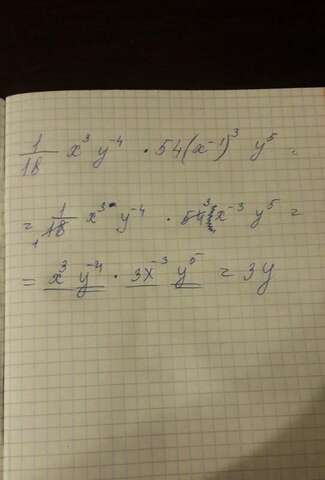 1/18 x³ y⁻⁴ · 54(x⁻¹)³ y⁵ =
= 1/18 x³ y⁻⁴ · 54 ³ x⁻³ y⁵ =
1
= x³ y⁻⁴ · 3x⁻³ y⁵ = 3y